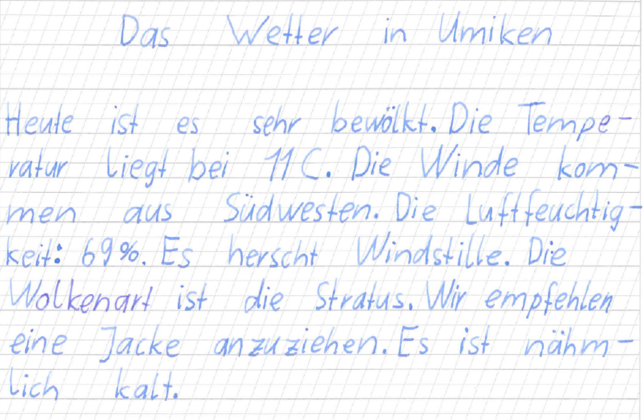 Das Wetter in Umiken
Heute ist es sehr bewölkt. Die Tempe-
ratur liegt bei 11 C. Die Winde kom-
men aus Südwesten. Die Luftfeuchtig-
keit: 69%. Es herscht Windstille. Die
Wolkenart ist die Stratus. Wir empfehlen
eine Jacke anzuziehen. Es ist nähm-
lich kalt.